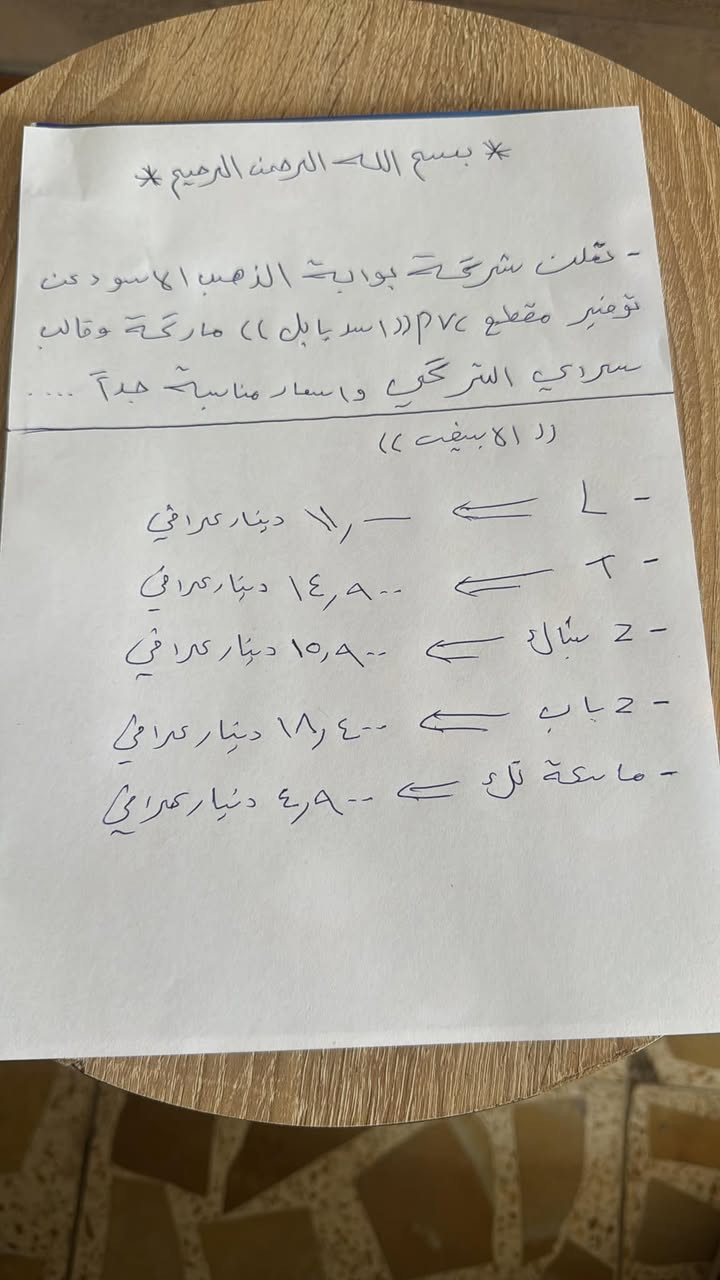 * بسم الله الرحمن الرحيم *
- تعلن شركة بوابة الذهب الاسود عن
توفير مقطع PVC ((اسد بابل)) ماركة وقالب
سراي التركي واسعار مناسبة جداً ....
((الابيض))
- L ⇐ ١١,٠٠٠ دينار عراقي
- T ⇐ ١٤,٩٠٠ دينار عراقي
- Z شباك ⇐ ١٥,٩٠٠ دينار عراقي
- Z باب ⇐ ١٨,٤٠٠ دينار عراقي
- ماسكة تك ⇐ ٤,٩٠٠ دينار عراقي